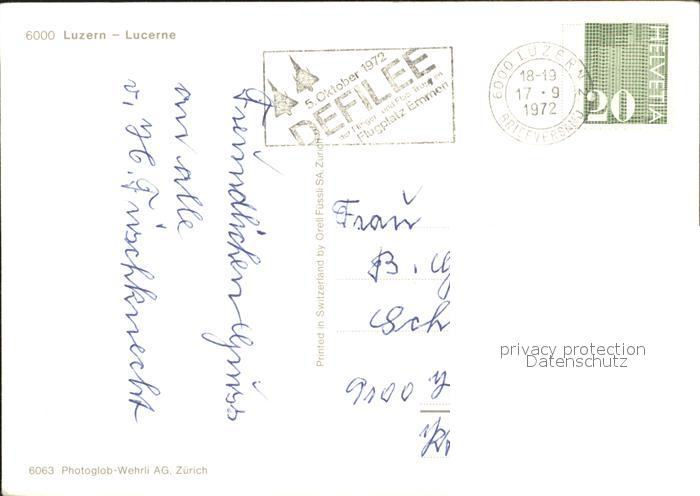 6000 Luzern – Lucerne
5. Oktober 1972
DEFILEE
der Flieger- und Flab-Truppen
Flugplatz Emmen
6000 LUZERN 2
18-19
17 · 9
1972
BRIEFVERSAND
HELVETIA
20
Freundlichen Gruss
an alle
v.
Printed in Switzerland by Orell Füssli SA, Zürich
Frau
B. G
Sch
9100
privacy protection
Datenschutz
6063 Photoglob-Wehrli AG, Zürich